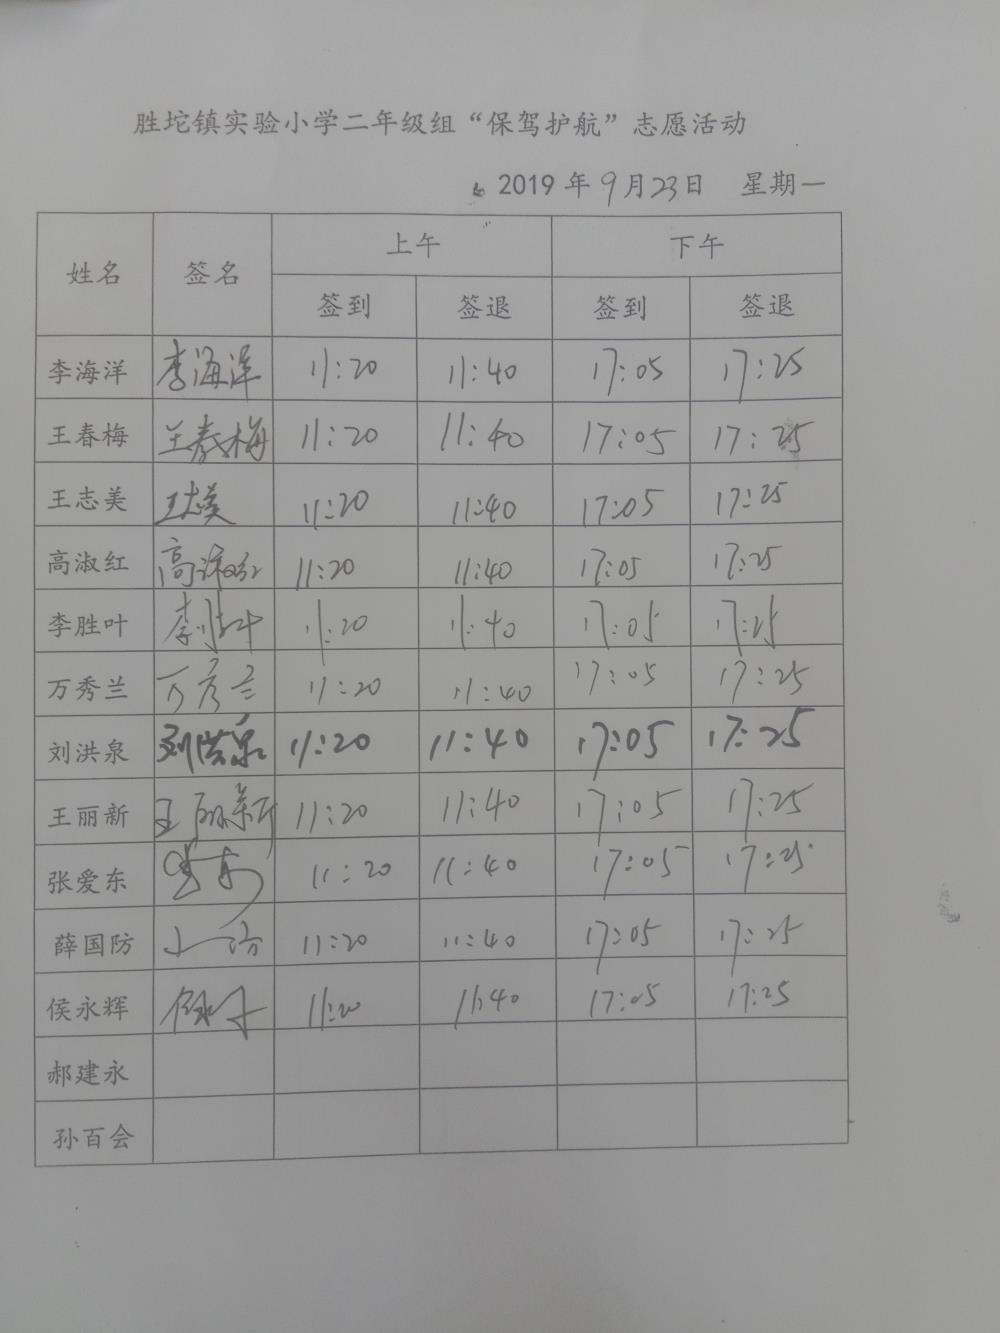 胜坨镇实验小学二年级组“保驾护航”志愿活动
2019 年 9月23日 星期一
姓名 签名 上午 下午
签到 签退 签到 签退
李海洋 李海洋 11:20 11:40 17:05 17:25
王春梅 王春梅 11:20 11:40 17:05 17:25
王志美 王志美 11:20 11:40 17:05 17:25
高淑红 高淑红 11:20 11:40 17:05 17:25
李胜叶 李胜叶 11:20 11:40 17:05 17:25
万秀兰 万秀兰 11:20 11:40 17:05 17:25
刘洪泉 刘洪泉 11:20 11:40 17:05 17:25
王丽新 王丽新 11:20 11:40 17:05 17:25
张爱东 11:20 11:40 17:05 17:25
薛国防 11:20 11:40 17:05 17:25
侯永辉 11:20 11:40 17:05 17:25
郝建永
孙百会